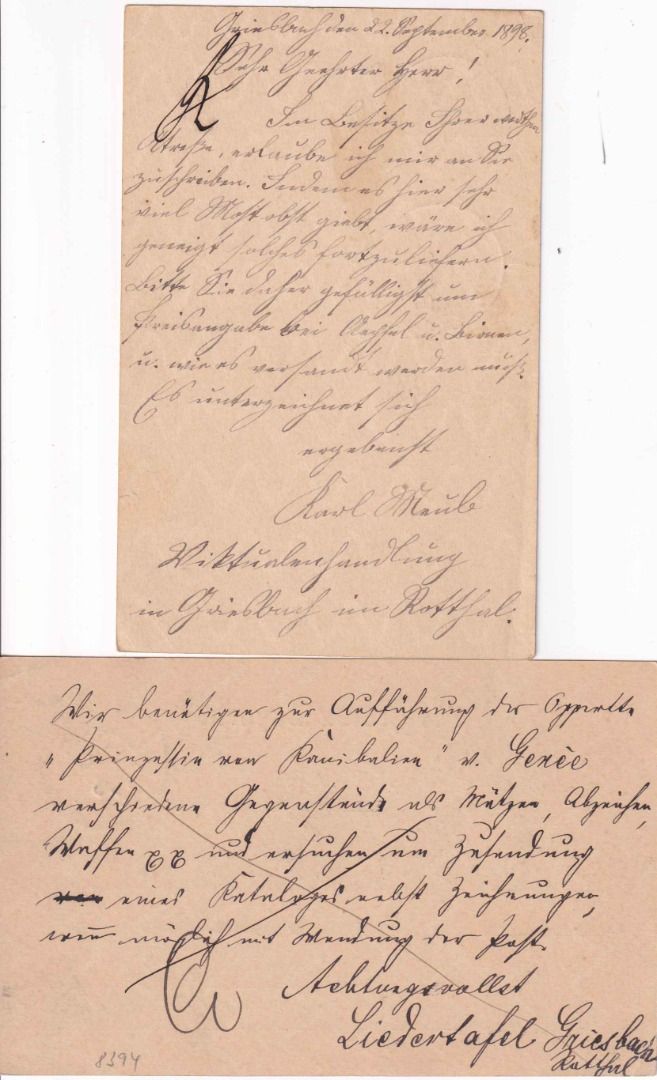 Griesbach den 22. September 1898.
Sehr Geehrter Herr!
Im Besitze Ihrer werthen
Adreße, erlaube ich mir an Sie
zuschreiben. Indem es hier sehr
viel Mostobst giebt, wäre ich
geneigt solches fortzuliefern.
Bitte Sie daher gefälligst um
Preisangabe bei Aepfel u. Birnen,
u. wie es versandt werden muß.
Es unterzeichnet sich
ergebenst
Karl
Viktualienhandlung
in Griesbach im Rotthal.
Wir benötigen zur Aufführung der Opperette
„Prinzessin von Kanibalien" v. Genèe
verschiedene Gegenstände als Mützen, Abzeichen,
Waffen und ersuchen um Zusendung
eines Kataloges nebst Zeichnungen,
wenn möglich mit Wendung der Post.
Achtungsvollst
Liedertafel Griesbach
Rotthal
8394